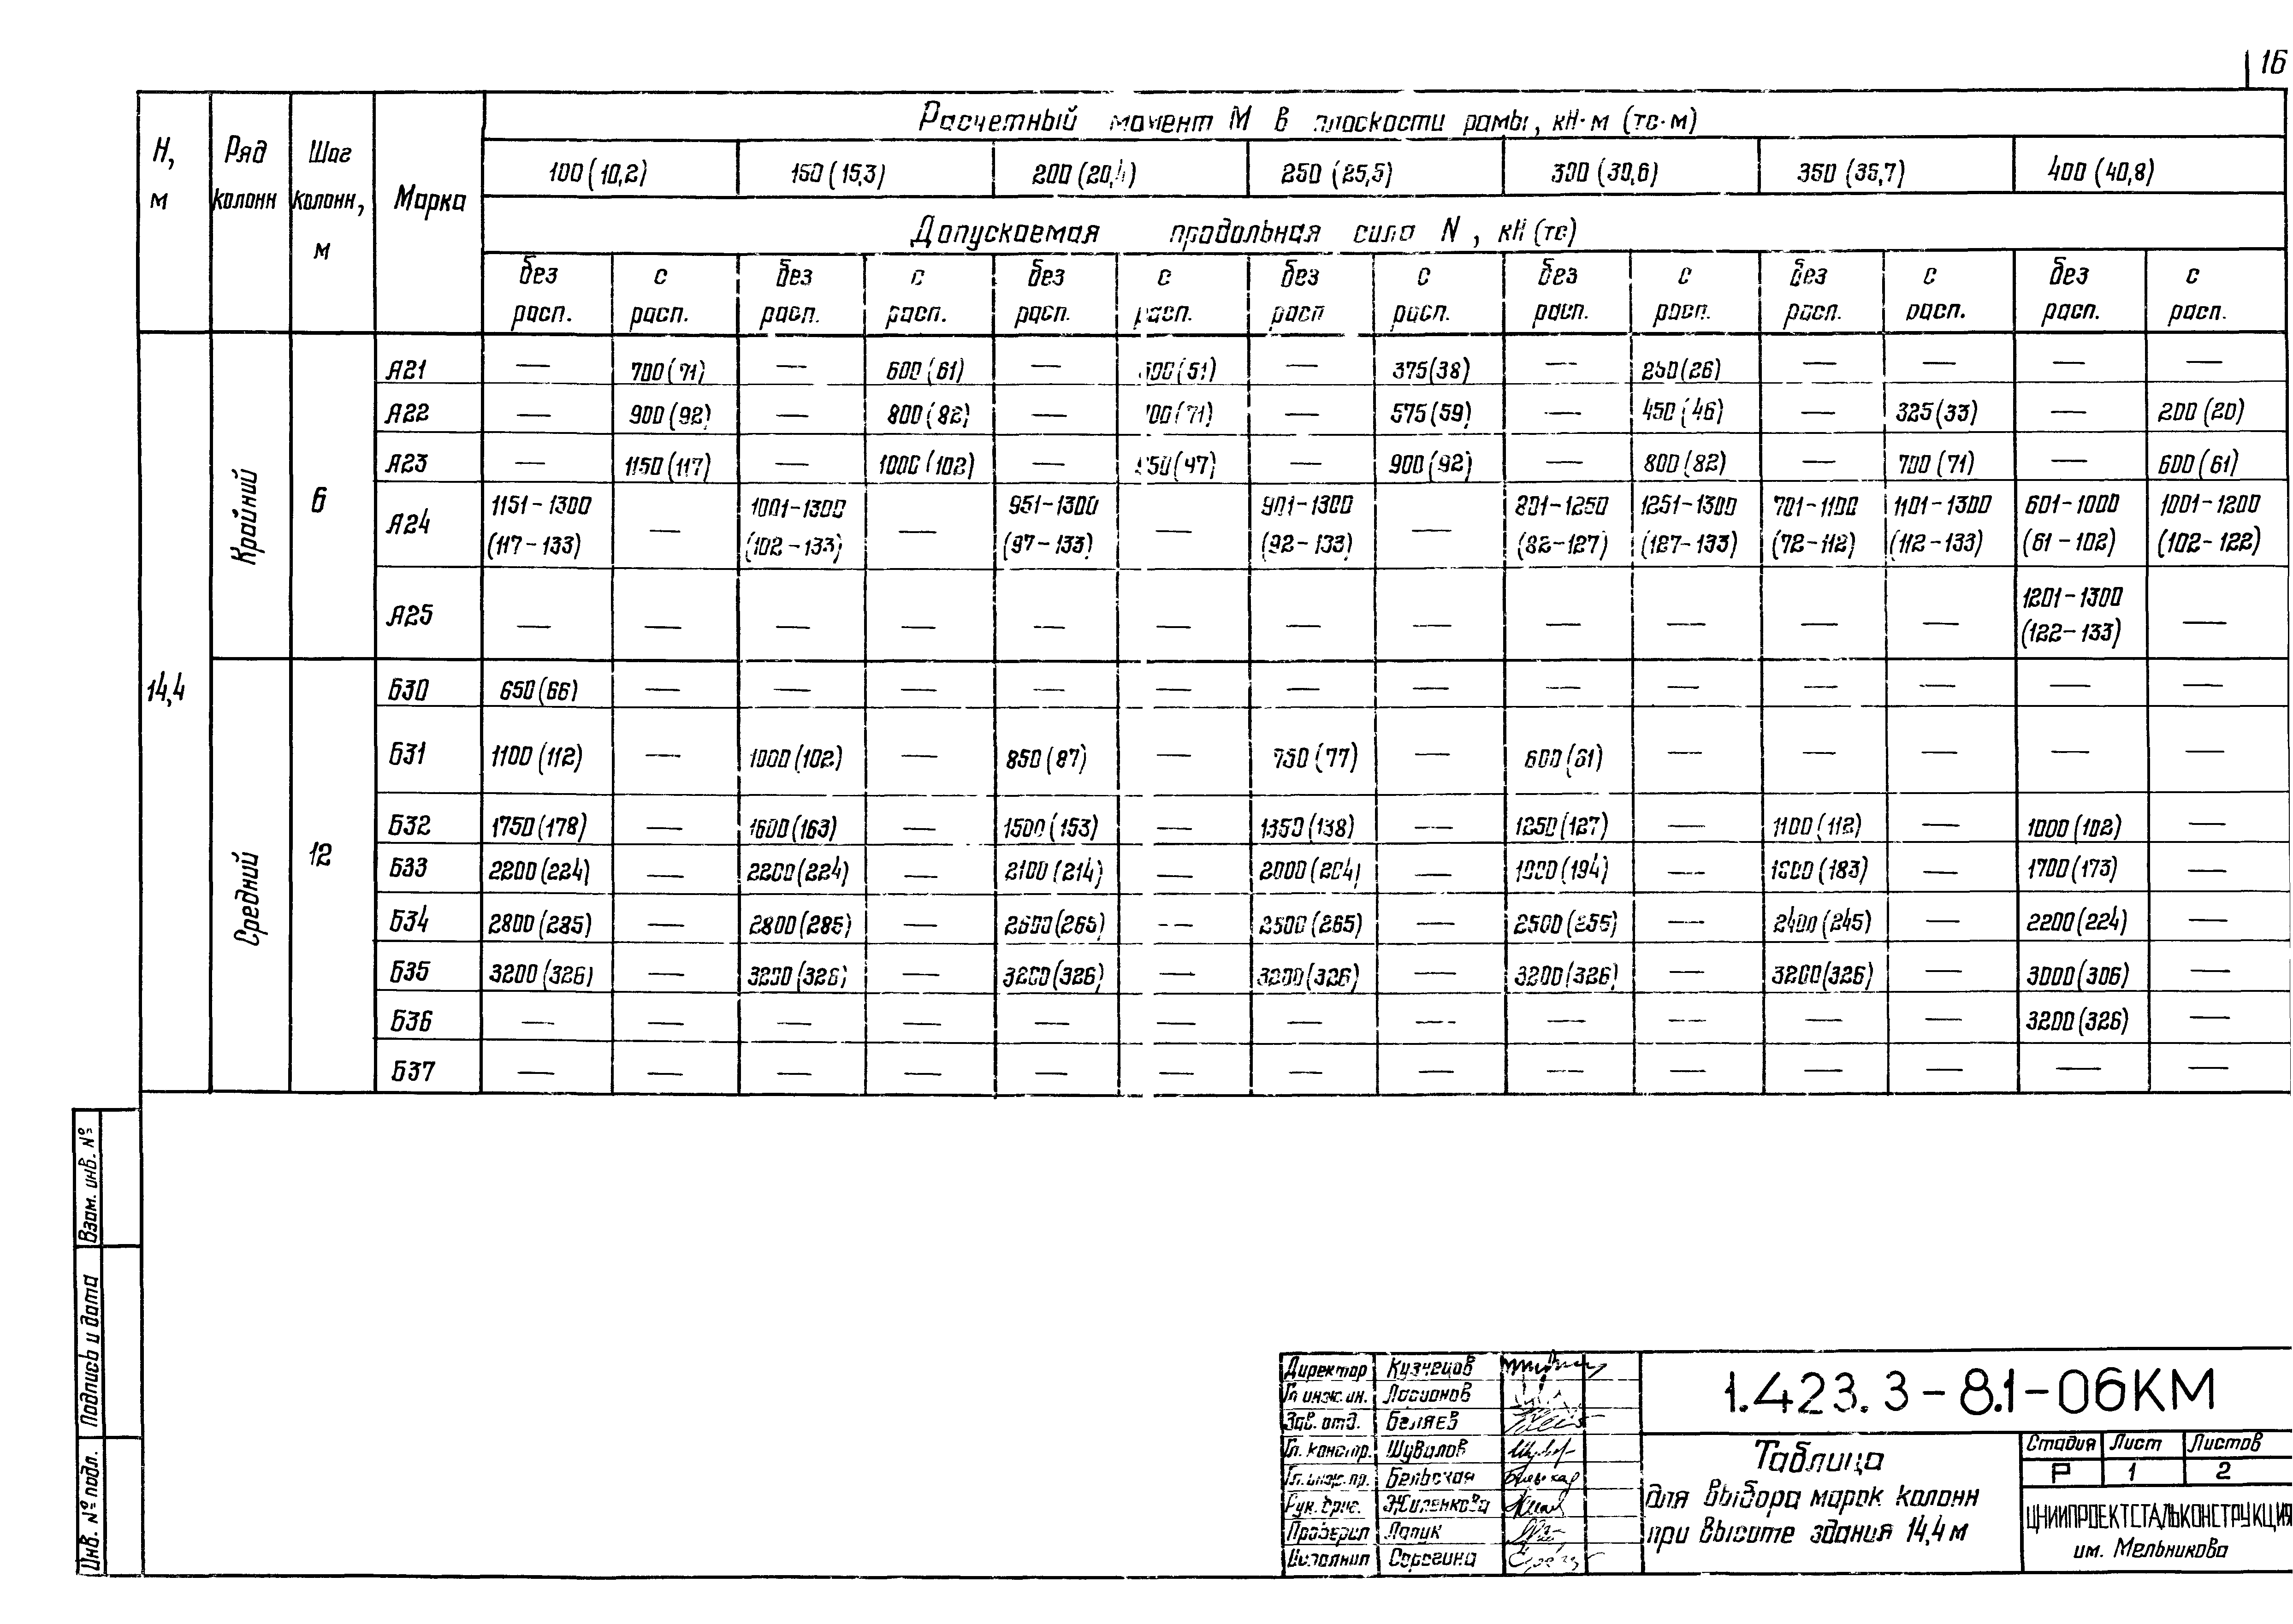 16
Н, м
Ряд колонн
Шаг колонн, м
Марка
Расчетный момент М в плоскости рамы, кН·м (тс·м)
100 (10,2) 150 (15,3) 200 (20,4) 250 (25,5) 300 (30,6) 350 (35,7) 400 (40,8)
Допускаемая продольная сила N, кН (тс)
без расп. с расп. без расп. с расп. без расп. с расп. без расп с расп. без расп. с расп. без расп. с расп. без расп. с расп.
14,4
Крайний
6
А21 — 700 (71) — 600 (61) — 500 (51) — 375 (38) — 250 (26) — — — —
А22 — 900 (92) — 800 (82) — 700 (71) — 575 (59) — 450 (46) — 325 (33) — 200 (20)
А23 — 1150 (117) — 1000 (102) — 950 (97) — 900 (92) — 800 (82) — 700 (71) — 600 (61)
А24 1151-1300 (117-133) — 1001-1300 (102-133) — 951-1300 (97-133) — 901-1300 (92-133) — 801-1250 (82-127) 1251-1300 (127-133) 701-1100 (72-112) 1101-1300 (112-133) 601-1000 (61-102) 1001-1200 (102-122)
А25 — — — — — — — — — — — — 1201-1300 (122-133) —
Средний
12
Б30 650 (66) — — — — — — — — — — — — —
Б31 1100 (112) — 1000 (102) — 850 (87) — 750 (77) — 600 (61) — — — — —
Б32 1750 (178) — 1600 (163) — 1500 (153) — 1350 (138) — 1250 (127) — 1100 (112) — 1000 (102) —
Б33 2200 (224) — 2200 (224) — 2100 (214) — 2000 (204) — 1900 (194) — 1800 (183) — 1700 (173) —
Б34 2800 (285) — 2800 (285) — 2600 (265) — (265) — 2500 (255) — 2400 (245) — 2200 (224) —
Б35 3200 (326) — 3200 (326) — 3200 (326) — 3200 (326) — 3200 (326) — 3200 (326) — 3000 (306) —
Б36 — — — — — — — — — — — — 3200 (326) —
Б37 — — — — — — — — — — — — — —
Взам. инв. №
Подпись и дата
Инв. № подл.
Директор Кузнецов
Гл инж. ин. Ларионов
Зав. отд. Беляев
Гл. констр. Шувалов
Гл. инж. пр. Бельская
Рук. бриг. Жиленкова
Проверил Лапук
Исполнил Серегина
1.423.3-8.1-06КМ
Таблица
для выбора марок колонн
при высоте здания 14,4 м
Стадия Лист Листов
Р 1 2
ЦНИИПРОЕКТСТАЛЬКОНСТРУКЦИЯ
им. Мельникова